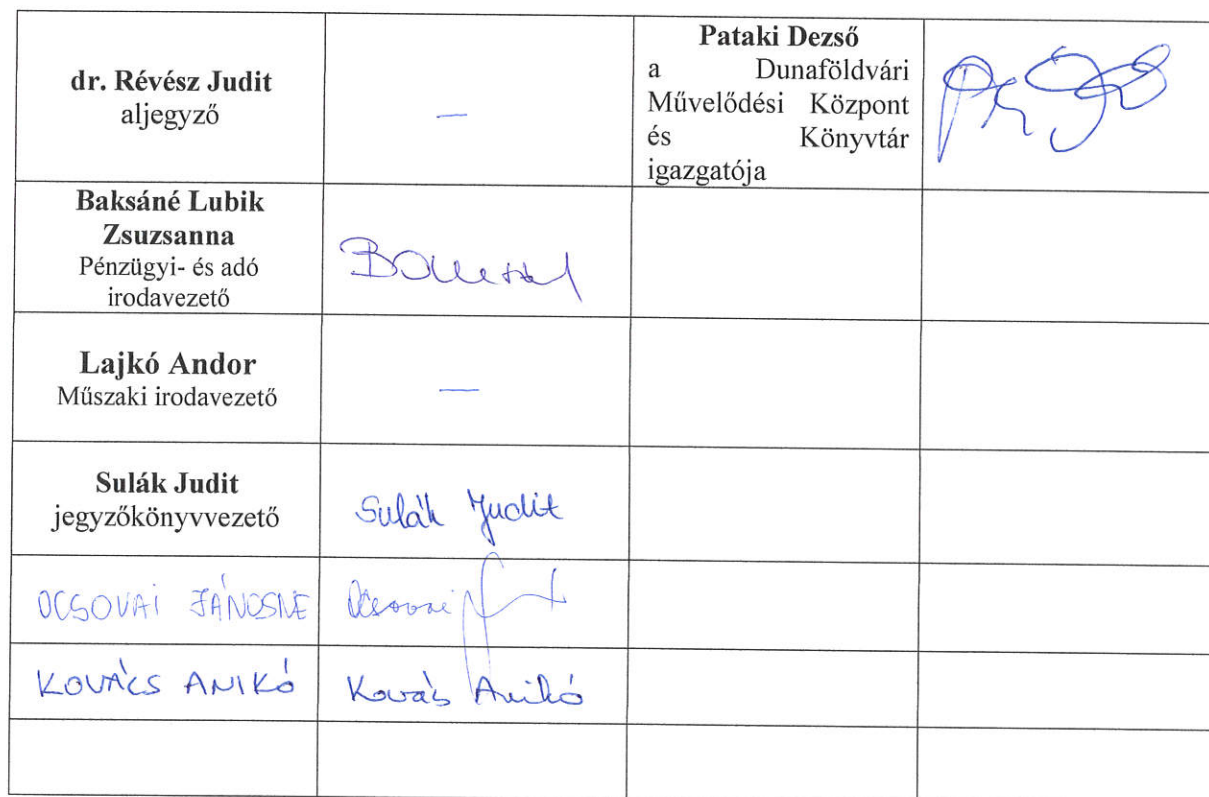 dr. Révész Judit
aljegyző
—
Pataki Dezső
a Dunaföldvári
Művelődési Központ
és Könyvtár
igazgatója
Baksáné Lubik
Zsuzsanna
Pénzügyi- és adó
irodavezető
Lajkó Andor
Műszaki irodavezető
—
Sulák Judit
jegyzőkönyvvezető
Sulák Judit
OCSOVAI JÁNOSNE
Ocsovai
KOVÁCS ANIKÓ
Kovács Anikó